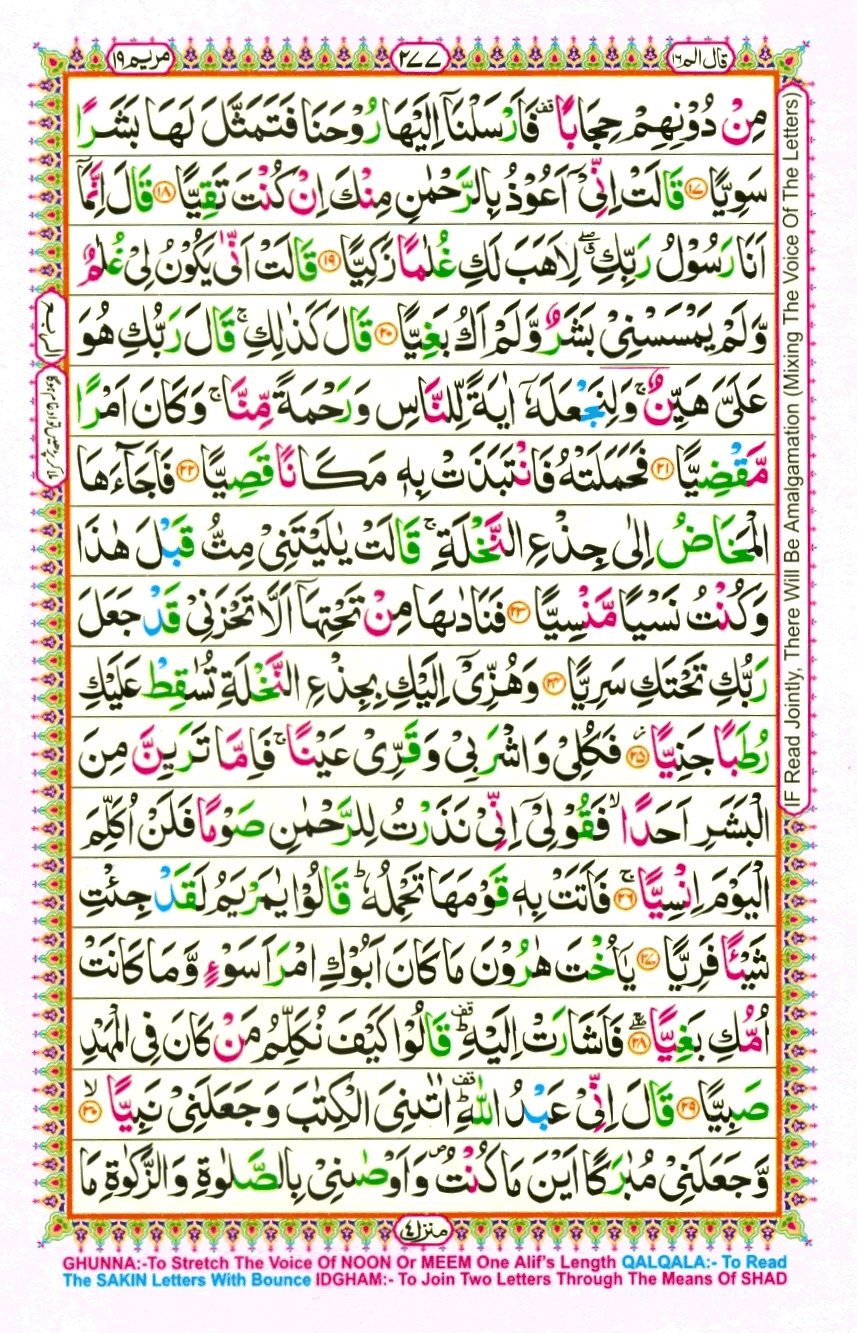 قال الم ١٦
٢٧٧
مريم ١٩
مِنْ دُوْنِهِمْ حِجَابًا ۪ فَاَرْسَلْنَاۤ اِلَيْهَا رُوْحَنَا فَتَمَثَّلَ لَهَا بَشَرًا
سَوِيًّا ﴿١٧﴾ قَالَتْ اِنِّىْۤ اَعُوْذُ بِالرَّحْمٰنِ مِنْكَ اِنْ كُنْتَ تَقِيًّا ﴿١٨﴾ قَالَ اِنَّمَاۤ
اَنَا رَسُوْلُ رَبِّكِ ۖ لِاَهَبَ لَكِ غُلٰمًا زَكِيًّا ﴿١٩﴾ قَالَتْ اَنّٰى يَكُوْنُ لِىْ غُلٰمٌ
وَّلَمْ يَمْسَسْنِىْ بَشَرٌ وَّلَمْ اَكُ بَغِيًّا ﴿٢٠﴾ قَالَ كَذٰلِكِ ۚ قَالَ رَبُّكِ هُوَ
عَلَىَّ هَيِّنٌ ۚ وَلِنَجْعَلَهٗۤ اٰيَةً لِّلنَّاسِ وَرَحْمَةً مِّنَّا ۚ وَكَانَ اَمْرًا
مَّقْضِيًّا ﴿٢١﴾ فَحَمَلَتْهُ فَانْتَبَذَتْ بِهٖ مَكَانًا قَصِيًّا ﴿٢٢﴾ فَاَجَآءَهَا
الْمَخَاضُ اِلٰى جِذْعِ النَّخْلَةِ ۚ قَالَتْ يٰلَيْتَنِىْ مِتُّ قَبْلَ هٰذَا
وَكُنْتُ نَسْيًا مَّنْسِيًّا ﴿٢٣﴾ فَنَادٰىهَا مِنْ تَحْتِهَاۤ اَلَّا تَحْزَنِىْ قَدْ جَعَلَ
رَبُّكِ تَحْتَكِ سَرِيًّا ﴿٢٤﴾ وَهُزِّىْۤ اِلَيْكِ بِجِذْعِ النَّخْلَةِ تُسٰقِطْ عَلَيْكِ
رُطَبًا جَنِيًّا ﴿٢٥﴾ فَكُلِىْ وَاشْرَبِىْ وَقَرِّىْ عَيْنًا ۚ فَاِمَّا تَرَيِنَّ مِنَ
الْبَشَرِ اَحَدًا ۙ فَقُوْلِىْۤ اِنِّىْ نَذَرْتُ لِلرَّحْمٰنِ صَوْمًا فَلَنْ اُكَلِّمَ
الْيَوْمَ اِنْسِيًّا ﴿٢٦﴾ ۚ فَاَتَتْ بِهٖ قَوْمَهَا تَحْمِلُهٗ ؕ قَالُوْا يٰمَرْيَمُ لَقَدْ جِئْتِ
شَيْـًٔا فَرِيًّا ﴿٢٧﴾ يٰۤاُخْتَ هٰرُوْنَ مَا كَانَ اَبُوْكِ امْرَاَ سَوْءٍ وَّمَا كَانَتْ
اُمُّكِ بَغِيًّا ﴿٢٨﴾ ۖۚ فَاَشَارَتْ اِلَيْهِ ؕ قَالُوْا كَيْفَ نُكَلِّمُ مَنْ كَانَ فِى الْمَهْدِ
صَبِيًّا ﴿٢٩﴾ قَالَ اِنِّىْ عَبْدُ اللّٰهِ ؕ اٰتٰىنِىَ الْكِتٰبَ وَجَعَلَنِىْ نَبِيًّا ﴿٣٠﴾ ۙ
وَّجَعَلَنِىْ مُبٰرَكًا اَيْنَ مَا كُنْتُ ۪ وَاَوْصٰنِىْ بِالصَّلٰوةِ وَالزَّكٰوةِ مَا
IF Read Jointly, There Will Be Amalgamation (Mixing The Voice Of The Letters)
منزل ٤
GHUNNA:-To Stretch The Voice Of NOON Or MEEM One Alif's Length QALQALA:- To Read
The SAKIN Letters With Bounce IDGHAM:- To Join Two Letters Through The Means Of SHAD